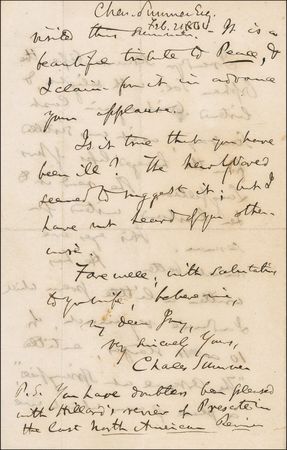 Chas. Sumner Esq.
Feb. 21
visited this summer. It is a
beautiful tribute to Peace, &
I claim for it in advance
your applause.
Is it true that you have
been ill? The
seemed to suggest it; but I
have not heard of you other-
wise.
Farewell; with salutations
to your wife, believe me,
my dear
Very sincerely Yours,
Charles Sumner
P.S. You have doubtless been pleased
with Hillard's review of Prescott in
the last North American Review